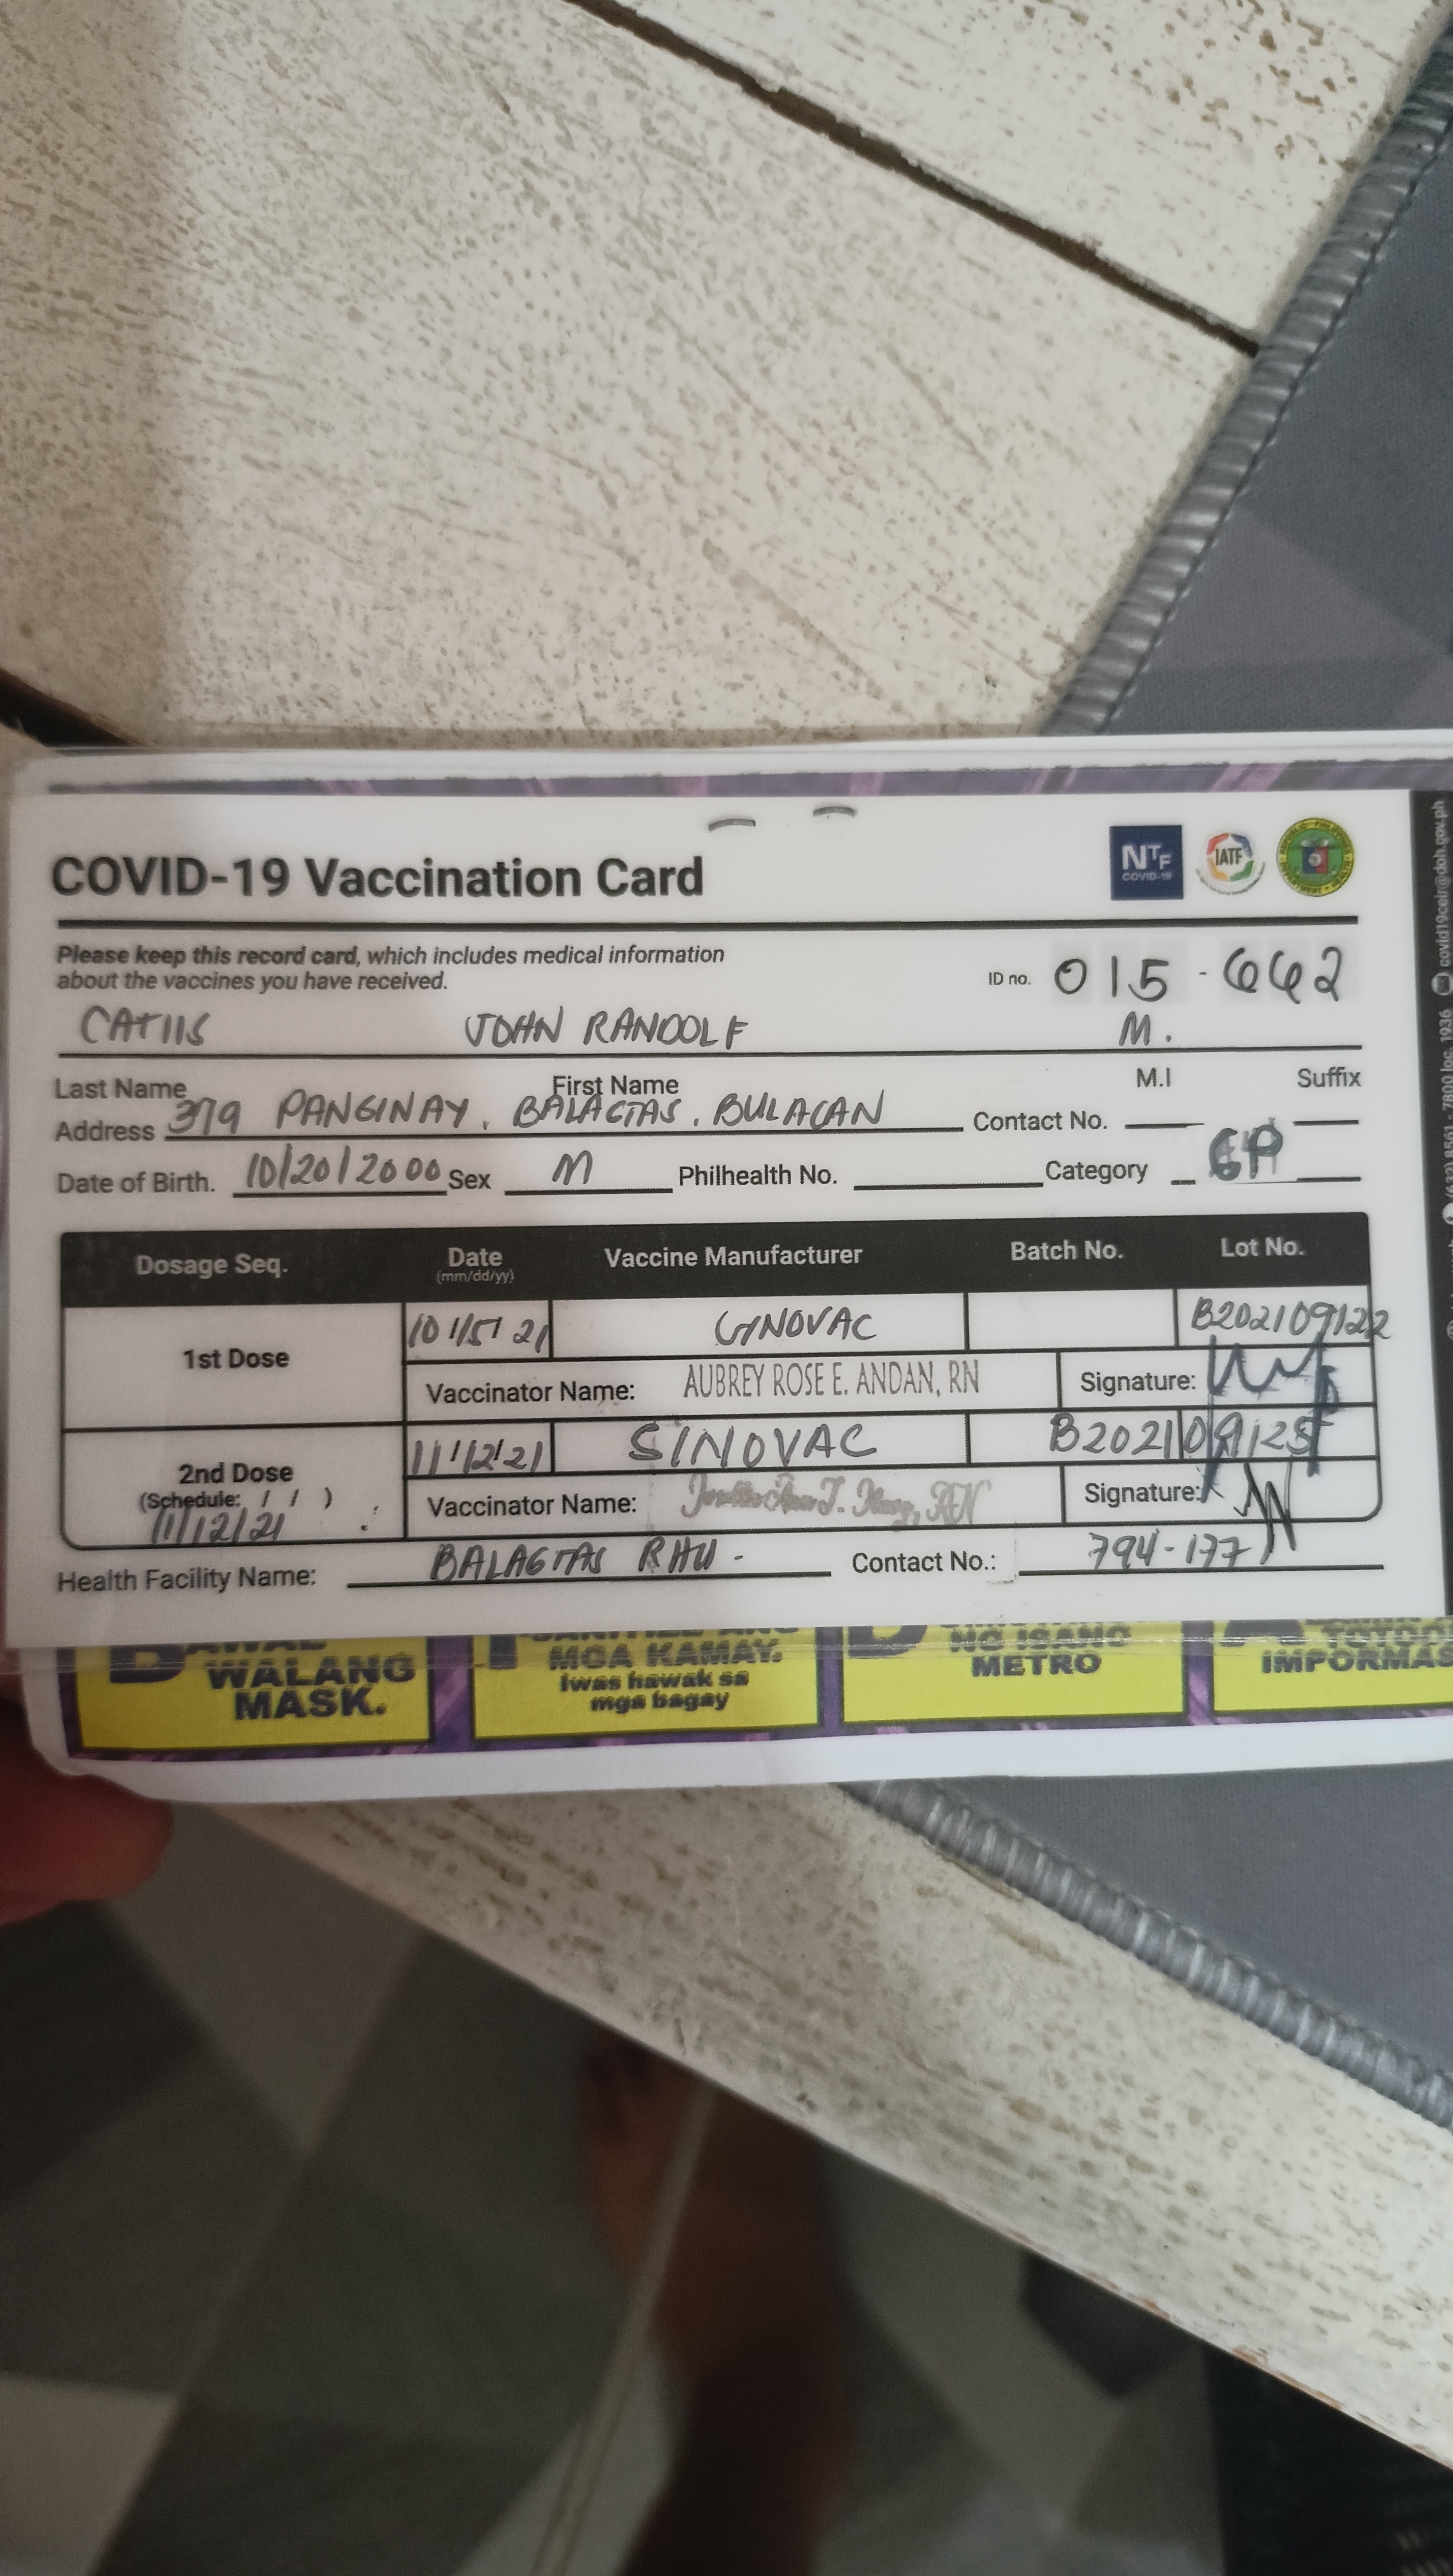 COVID-19 Vaccination Card
NTF COVID-19 IATF
Please keep this record card, which includes medical information
about the vaccines you have received.
ID no. 015-662
CATIIS JOHN RANDOLF M.
Last Name First Name M.I Suffix
Address 379 PANGINAY, BALAGTAS, BULACAN Contact No.
Date of Birth. 10/20/2000 Sex M Philhealth No. Category GP
Dosage Seq. Date (mm/dd/yy) Vaccine Manufacturer Batch No. Lot No.
1st Dose 10/15/21 SYNOVAC B202109122
Vaccinator Name: AUBREY ROSE E. ANDAN, RN Signature:
2nd Dose 11/12/21 SINOVAC B202109125
(Schedule: / / ) 11/12/21
Vaccinator Name: Signature:
Health Facility Name: BALAGTAS RHU - Contact No.: 794-177
covid19ceir@doh.gov.ph
WALANG
MASK.
MGA KAMAY.
Iwas hawak sa
mga bagay
NG ISANG
METRO